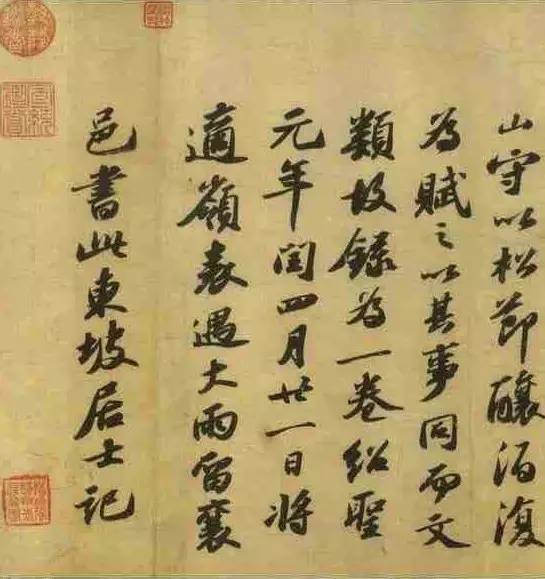 山守以松節釀酒復
為賦之以其事同而文
類故錄為一卷紹聖
元年閏四月廿一日將
適嶺表遇大雨留襄
邑書此東坡居士記